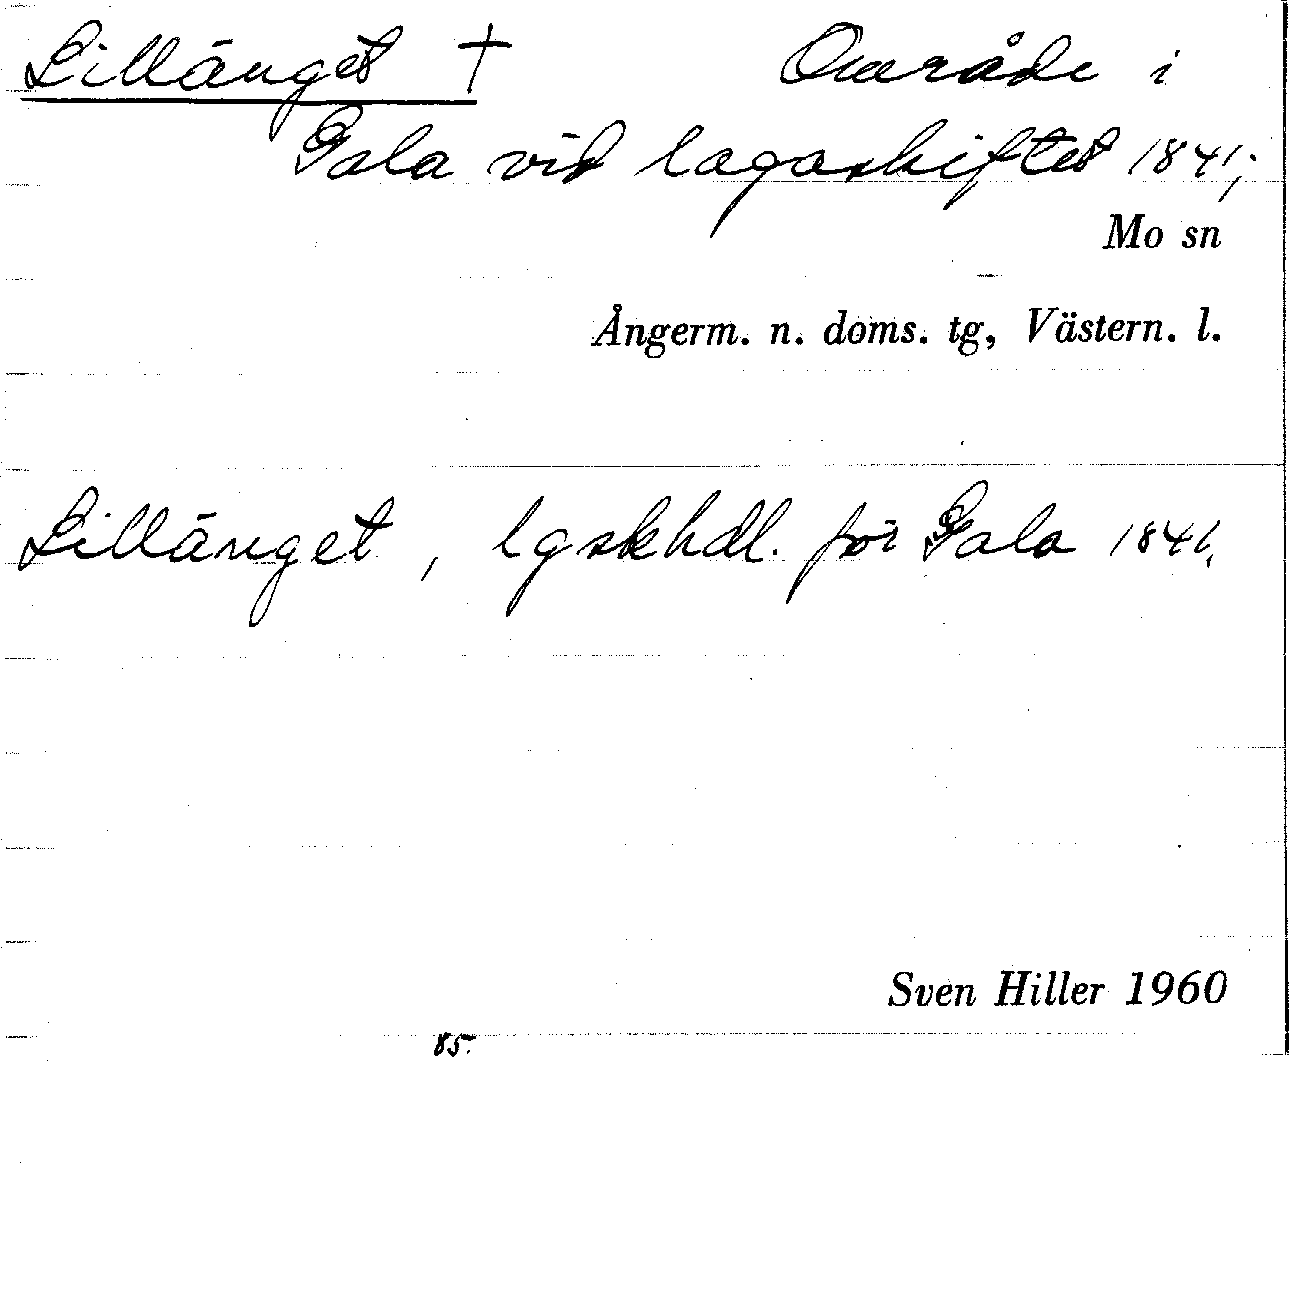 Lillänget † Område i
Gala vid lagaskiftet 1841;
Mo sn
Ångerm. n. doms. tg, Västern. l.
Lillänget, lgskhdl. för Gala 1841.
Sven Hiller 1960
85.